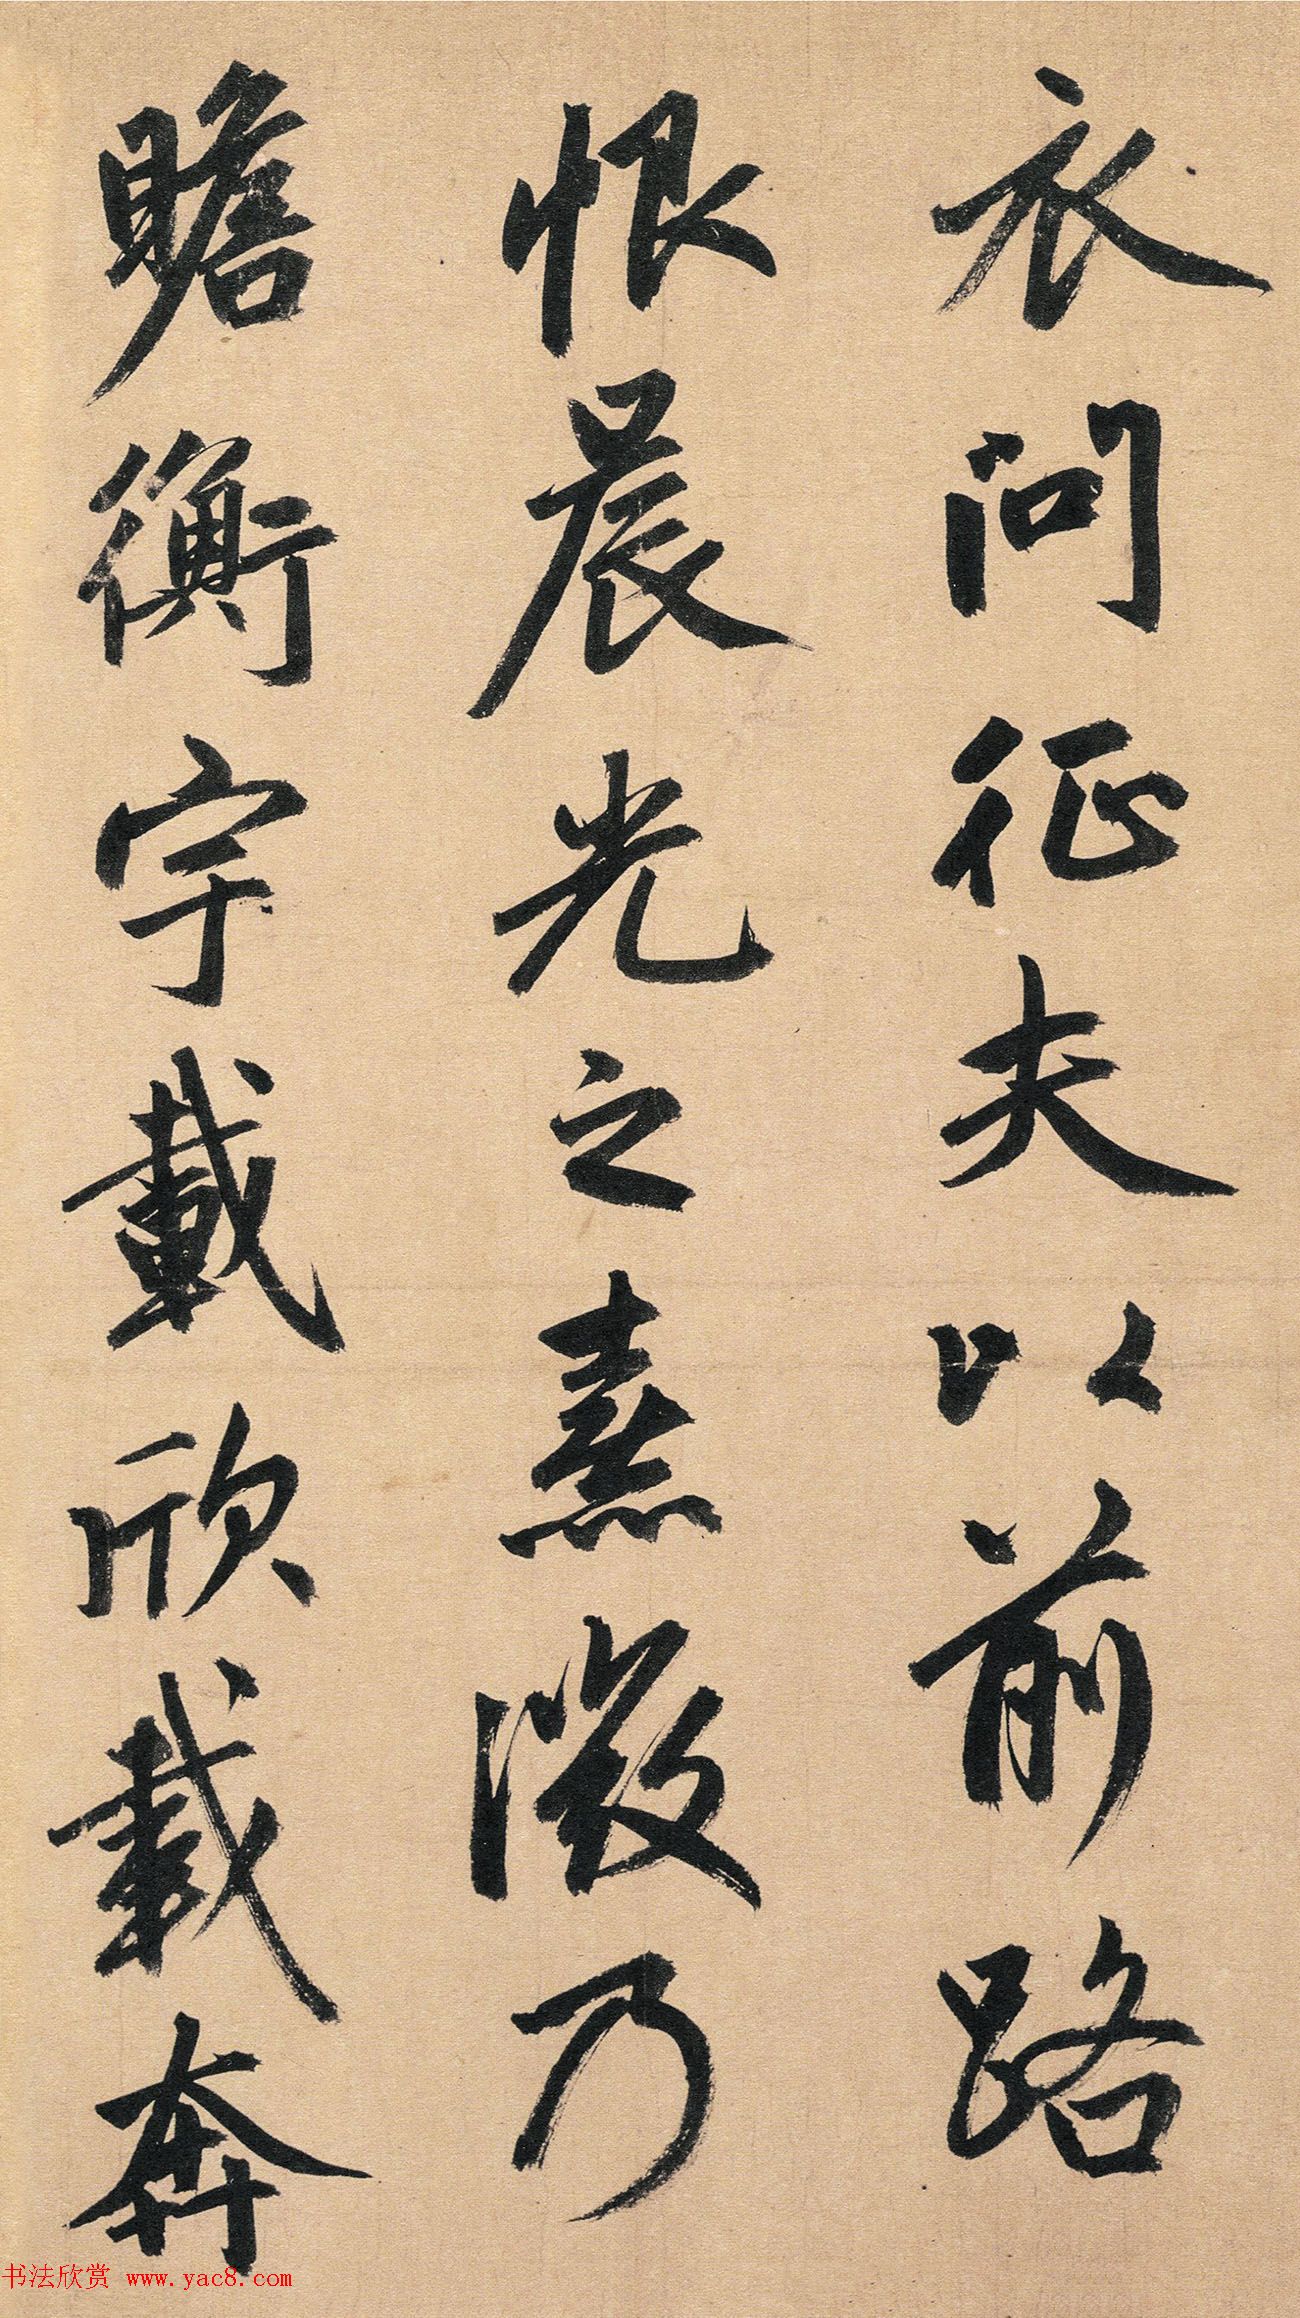 衣问征夫以前路
恨晨光之熹微乃
瞻衡宇载欣载奔
书法欣赏 www.yac8.com